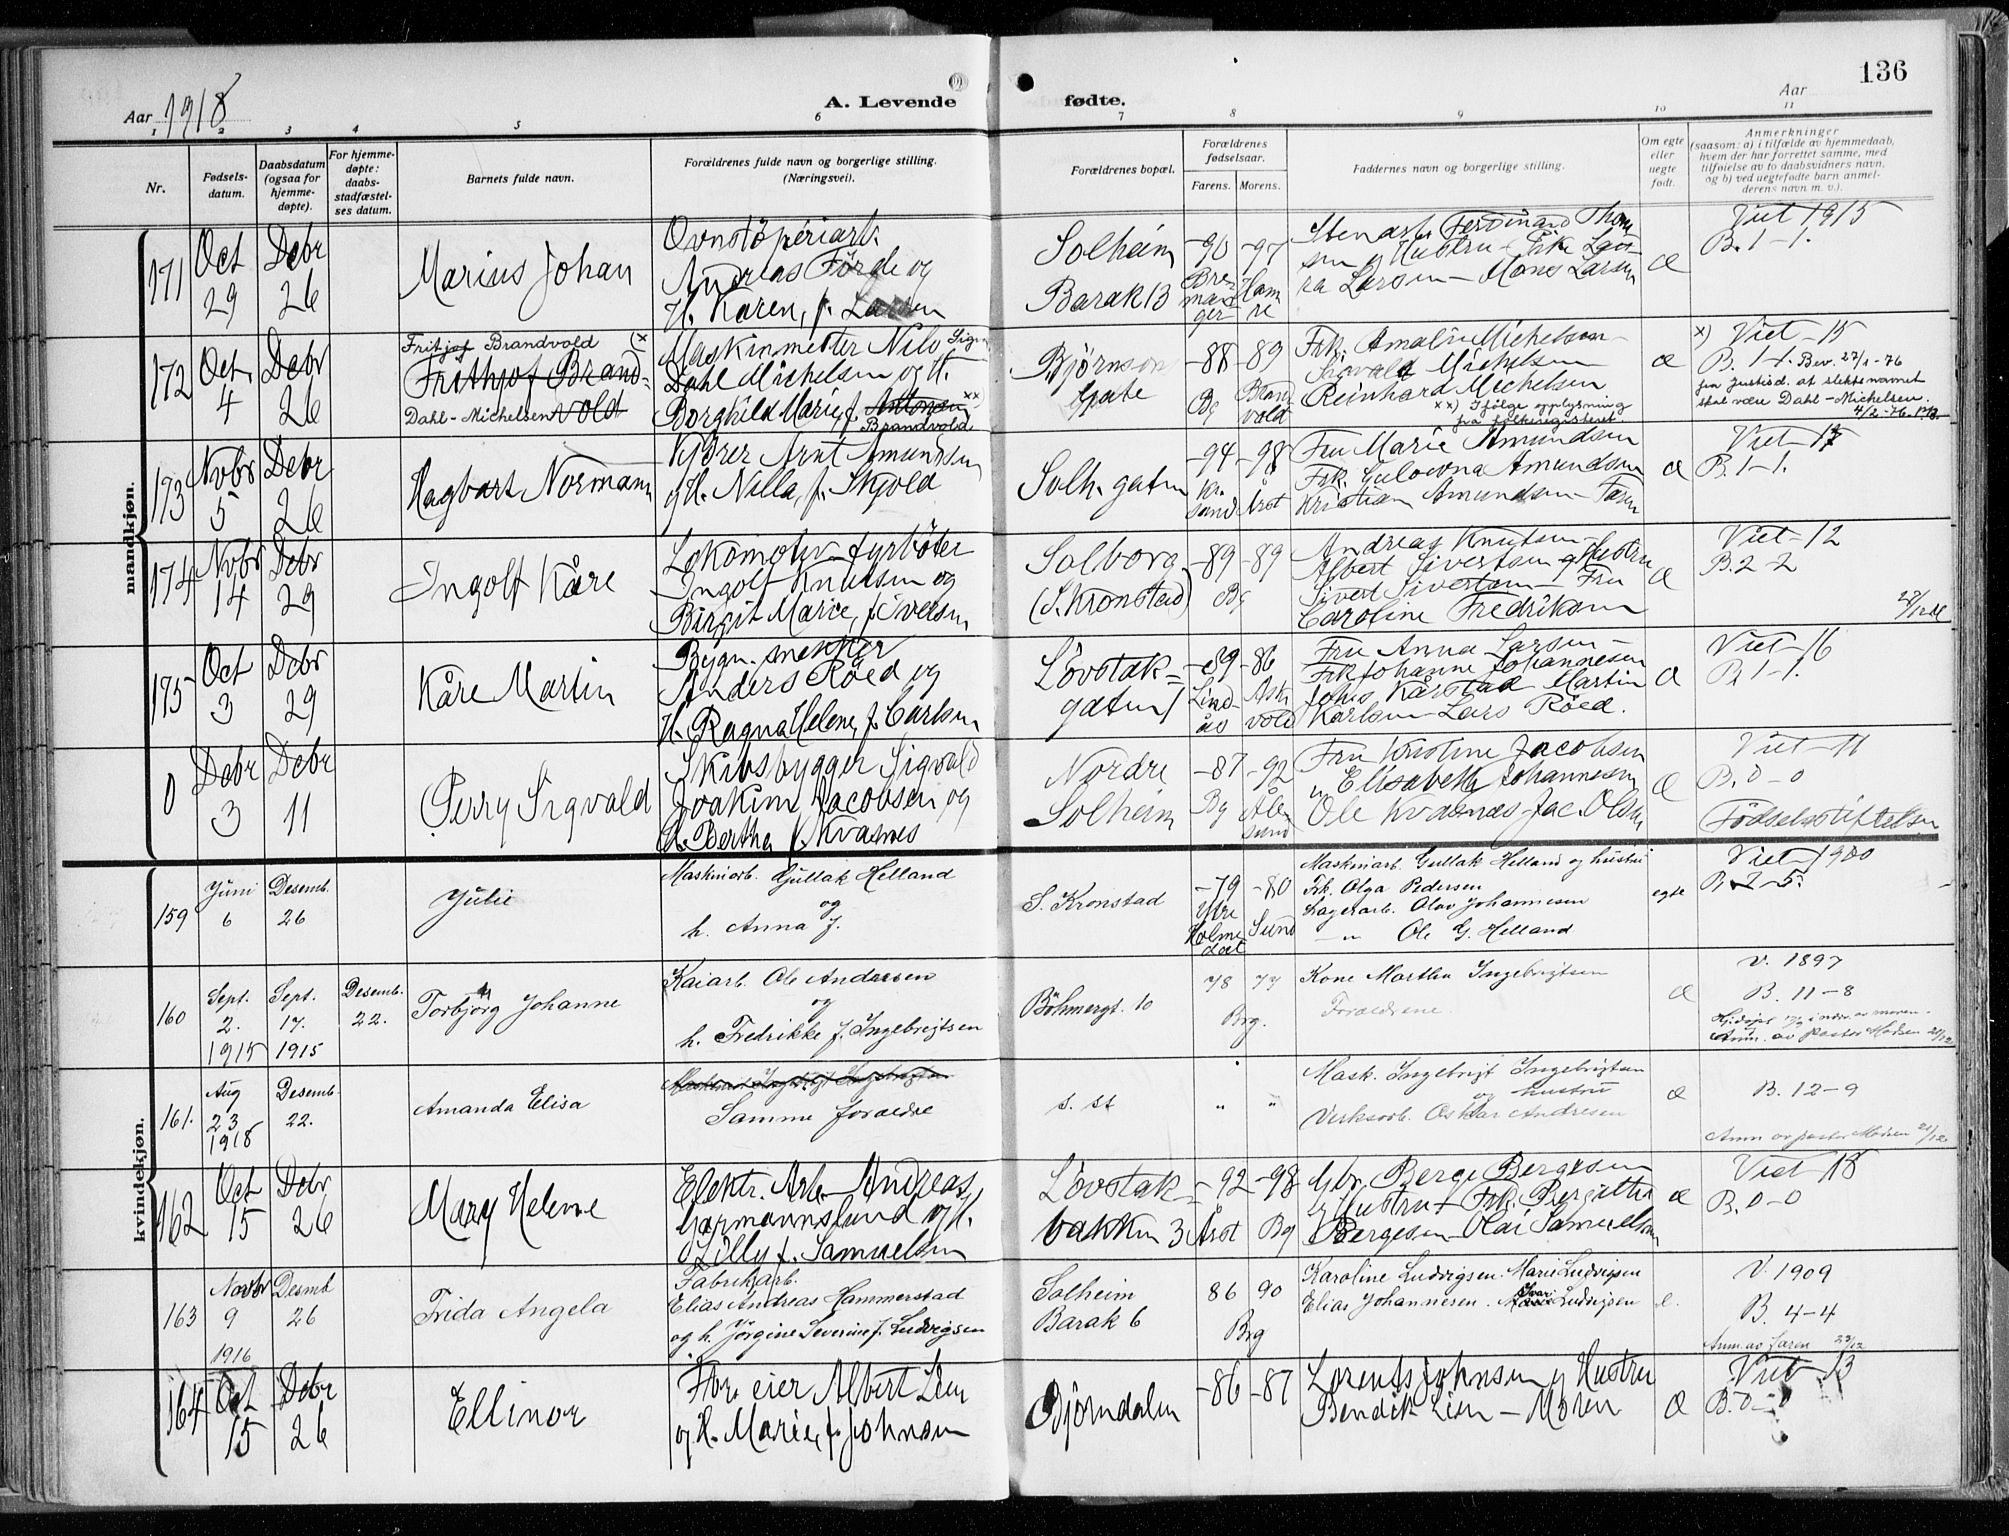 136
Aar 1918
A. Levende fødte.
Aar
1 2 3 4 5 6 7 8 8 9 10 11
Nr.
Fødsels-
datum.
Daabsdatum
(ogsaa for
hjemme-
døpte).
For hjemme-
døpte:
daabs-
stadfæstel-
ses datum.
Barnets fulde navn.
Forældrenes fulde navn og borgerlige stilling.
(Næringsvei).
Forældrenes bopæl.
Forældrenes
fødselsaar.
Farens. Morens.
Faddernes navn og borgerlige stilling.
Om egte
eller
uegte
født.
Anmerkninger
(saasom: a) i tilfælde av hjemmedaab,
hvem der har forrettet samme, med
tilføielse av to daabsvidners navn,
og b) ved uegtefødte barn anmel-
derens navn m. v.).
mandkjøn.
171
Oct
29
Debr
26
Marius Johan
Ovnstöperiarb.
Andreas Förde og
H. Karen, f. Larsen
Solheim
Barak 13
-90 -97
Bre
man
ger
Ham
re
Stenarb. Ferdinand Thom
sen og Hustru - Frk. Lau-
ra Larsen - Mons Larsen
Æ
Viet 1915
B. 1-1.
172
Oct.
4
Debr
26
Fritjof Brandvold (x
Frithjof Brand-
Dahl-Michelsen vold
Maskinmester Nils Sign
Dahl Michelsen og H.
Borghild Marie, f. Antonsen xx)
Brandvold
Bjørnson
Gate
-88 -89
Bg
Bran
vold
Frk. Amalie Michelsen -
Sigvald Michelsen
Reinhard Michelsen
xx) Ifølge opplysning
fra folkeregisteret.
Æ
x) Viet - 15
B. 1-1. Bev. 27/1-76
fra Justisd. at slektsnavnet
skal være Dahl-Michelsen.
4/2-76.
173
Novbr
5
Debr
26
Hagbart Normann
Kjörer Arnt Amundsen
og H. Nilla, f. Skjold
Solh. gaten
-94 -98
Kr.
sund
Årst
Fru Marie Amundsen
Frk. Gulovna Amundsen
Kristian Amundsen - Faren
Æ
Viet - 17
B. 1-1.
174
Novbr
14
Debr
29
Ingolf Kåre
Lokomotiv-fyrböter
Ingolf Knutsen og
Birgit Marie, f. Iversen
Solborg
(S. Kronstad)
-89 -89
Bg
Andreas Knutsen -
Albert Sivertsen og Hustru
Sivert Sivertsen - Fru
Caroline Fredriksen
Æ
Viet - 12
B. 2-2
175
Oct
3
Debr
29
Kåre Martin
Bygn. snekker
Anders Röed og
H. Ragna Helene, f. Carlsen
Lövstak-
gaten 1
-89 -86
Lind-
ås
Ask
vold
Fru Anna Larsen -
Frk Johanne Johannesen
Johs Kårstad Martin
Karlsen - Lars Röed.
Æ
Viet - 16
B. 1-1.
0
Debr
3
Debr
11
Perry Sigvald
Skibsbygger Sigvald
Joakim Jacobsen og
H. Bertha f. Kvasnes
Nordre
Solheim
-87 -92
Bg
Åle
sund
Fru Kristine Jacobsen
" Elisabeth Johannesen
Ole Kvasnes - Jac. Olsen
Æ
Viet - 11
B. 0-0
Födselsstiftelsen
kvindekjøn.
159
Juni
6
Desemb.
26
Julie
Maskinarb. Gullak Helland
og
h. Anna f.
S. Kronstad
-79 -80
Ytre
Holme
dal
Sund
Maskinarb. Gullak Helland og hustru
Frk. Olga Pedersen
Lagerarb. Olav Johannesen
— " Ole G. Helland
egte
Viet - 1900
B. 7-5.
160
Sept.
2.
1915
Sept.
17.
1915
Desemb.
22.
Torbjörg Johanne
Kaiarb. Ole Andersen
og
h. Fredrikke f. Ingebrigtsen
Böhmergt. 10
78 77
Brg.
Kone Martha Ingebrigtsen
Foreldrene
Æ
V. 1897
B. 11-8
Hjdöpt 17/9 i nærv. av moren.
Anm. av Pastor Madsen 21/12
161.
Aug
23
1918
Desemb.
22.
Amanda Elisa
Samme foreldre
s. st
" "
Mask. Ingebrigt Ingebrigtsen
og hustru
Verksarb. Oskar Andresen
Æ
B. 12-9
Anm av pastor Madsen 21/12
162
Oct
15
Debr
26
Mary Helene
Elektr. Arb. Andreas
Garmannslund og H.
Lilly f. Samuelsen
Lövstak-
bakken 3
-92 -98
Årst Bg
Berge Bergesen
og Hustru - Frk. Bergitte
Bergesen - Olai Samuelsen
Æ
Viet - 18
B. 0-0
163
Novbr
9
1916
Desmb
26
Frida Angela
Fabrikarb.
Elias Andreas Hammerstad
og h. Jörgine Severine f. Ludvigsen
Solheim
Barak 6
86 90
Brg
Karoline Ludvigsen. Marie Ludvigsen
Elias Johannesen. Ivar Ludvigsen
Æ.
V. 1909
B. 4-4
Anm av faren 23/12
164
Oct
15
Debr
26
Ellinor
Fbr. eier Albert Lien
og H. Marie, f. Johnsen
Bjørndalen
-86 -87
Lorents Johnsen og Hustru
Bendik Lien - Moren
Æ
Viet - 13
B. 0-0